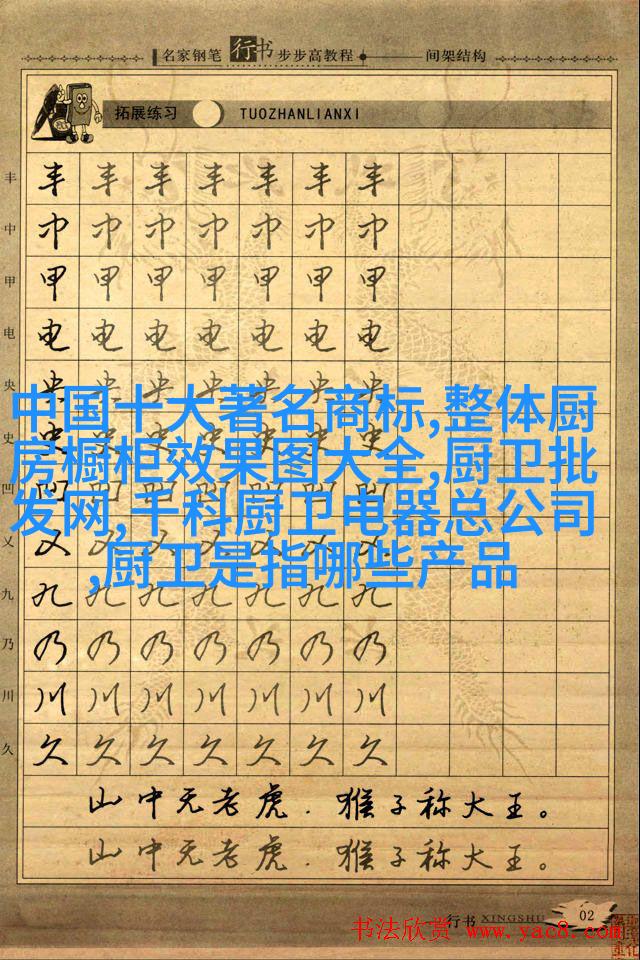 名家钢笔 行书 步步高教程 间架结构
拓展练习 TUOZHANLIANXI
丰 丰 丰 丰 丰 丰 丰 丰
中 中 中 中 中 中 中 中
甲 甲 甲 甲 甲 甲 甲 甲
电 电 电 电 电 电 电 电
央 央 央 央 央 央 央 央
中国十大著名商标,整体厨
史 史 史 史 史 史 史 史
房橱柜效果图大全,厨卫批
凹 凹 凹 凹 凹 凹 凹 凹
发网,千科厨卫电器总公司
乂 乂 乂 乂 乂 乂 乂 乂
,厨卫是指哪些产品
九 九 九 九 九 九 九 九
乃 乃 乃 乃 乃 乃 乃 乃
川 川 川 川 川 川 川 川
久 久 久 久 久 久 久 久
山中无老虎.猴子称大王。
山中无老虎.猴子称大王。
行书 XINGSHU 02
书法欣赏 www.yac8.com